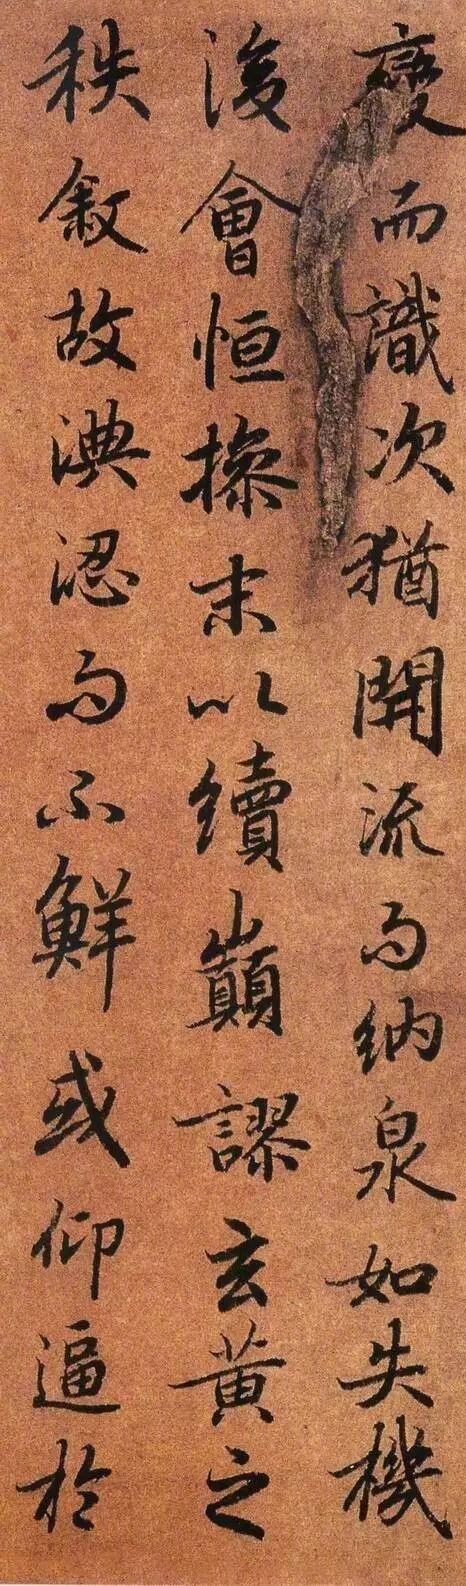 變而識次猶開流而納泉如失機
後會恒操末以續巔謬玄黃之
秩敘故淟涊而不鮮或仰逼於